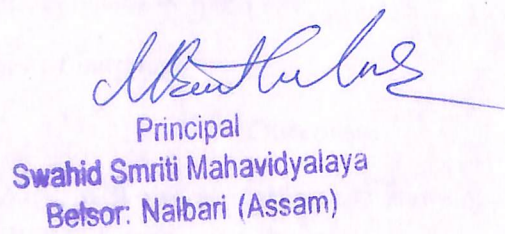 Principal
Swahid Smriti Mahavidyalaya
Belsor: Nalbari (Assam)